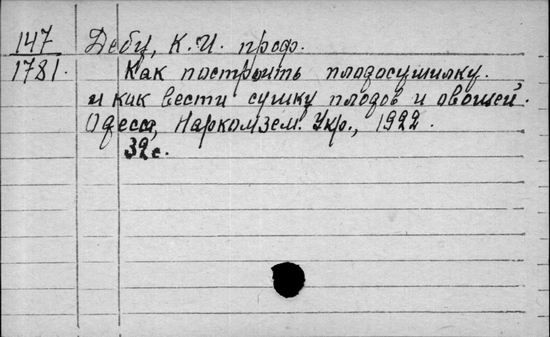 147
1781.
Дебу, К.И. проф.
Как построить плодосушилку.
и как вести сушку плодов и овощей.
Одесса, Наркомзем. Укр., 1922.
32с.